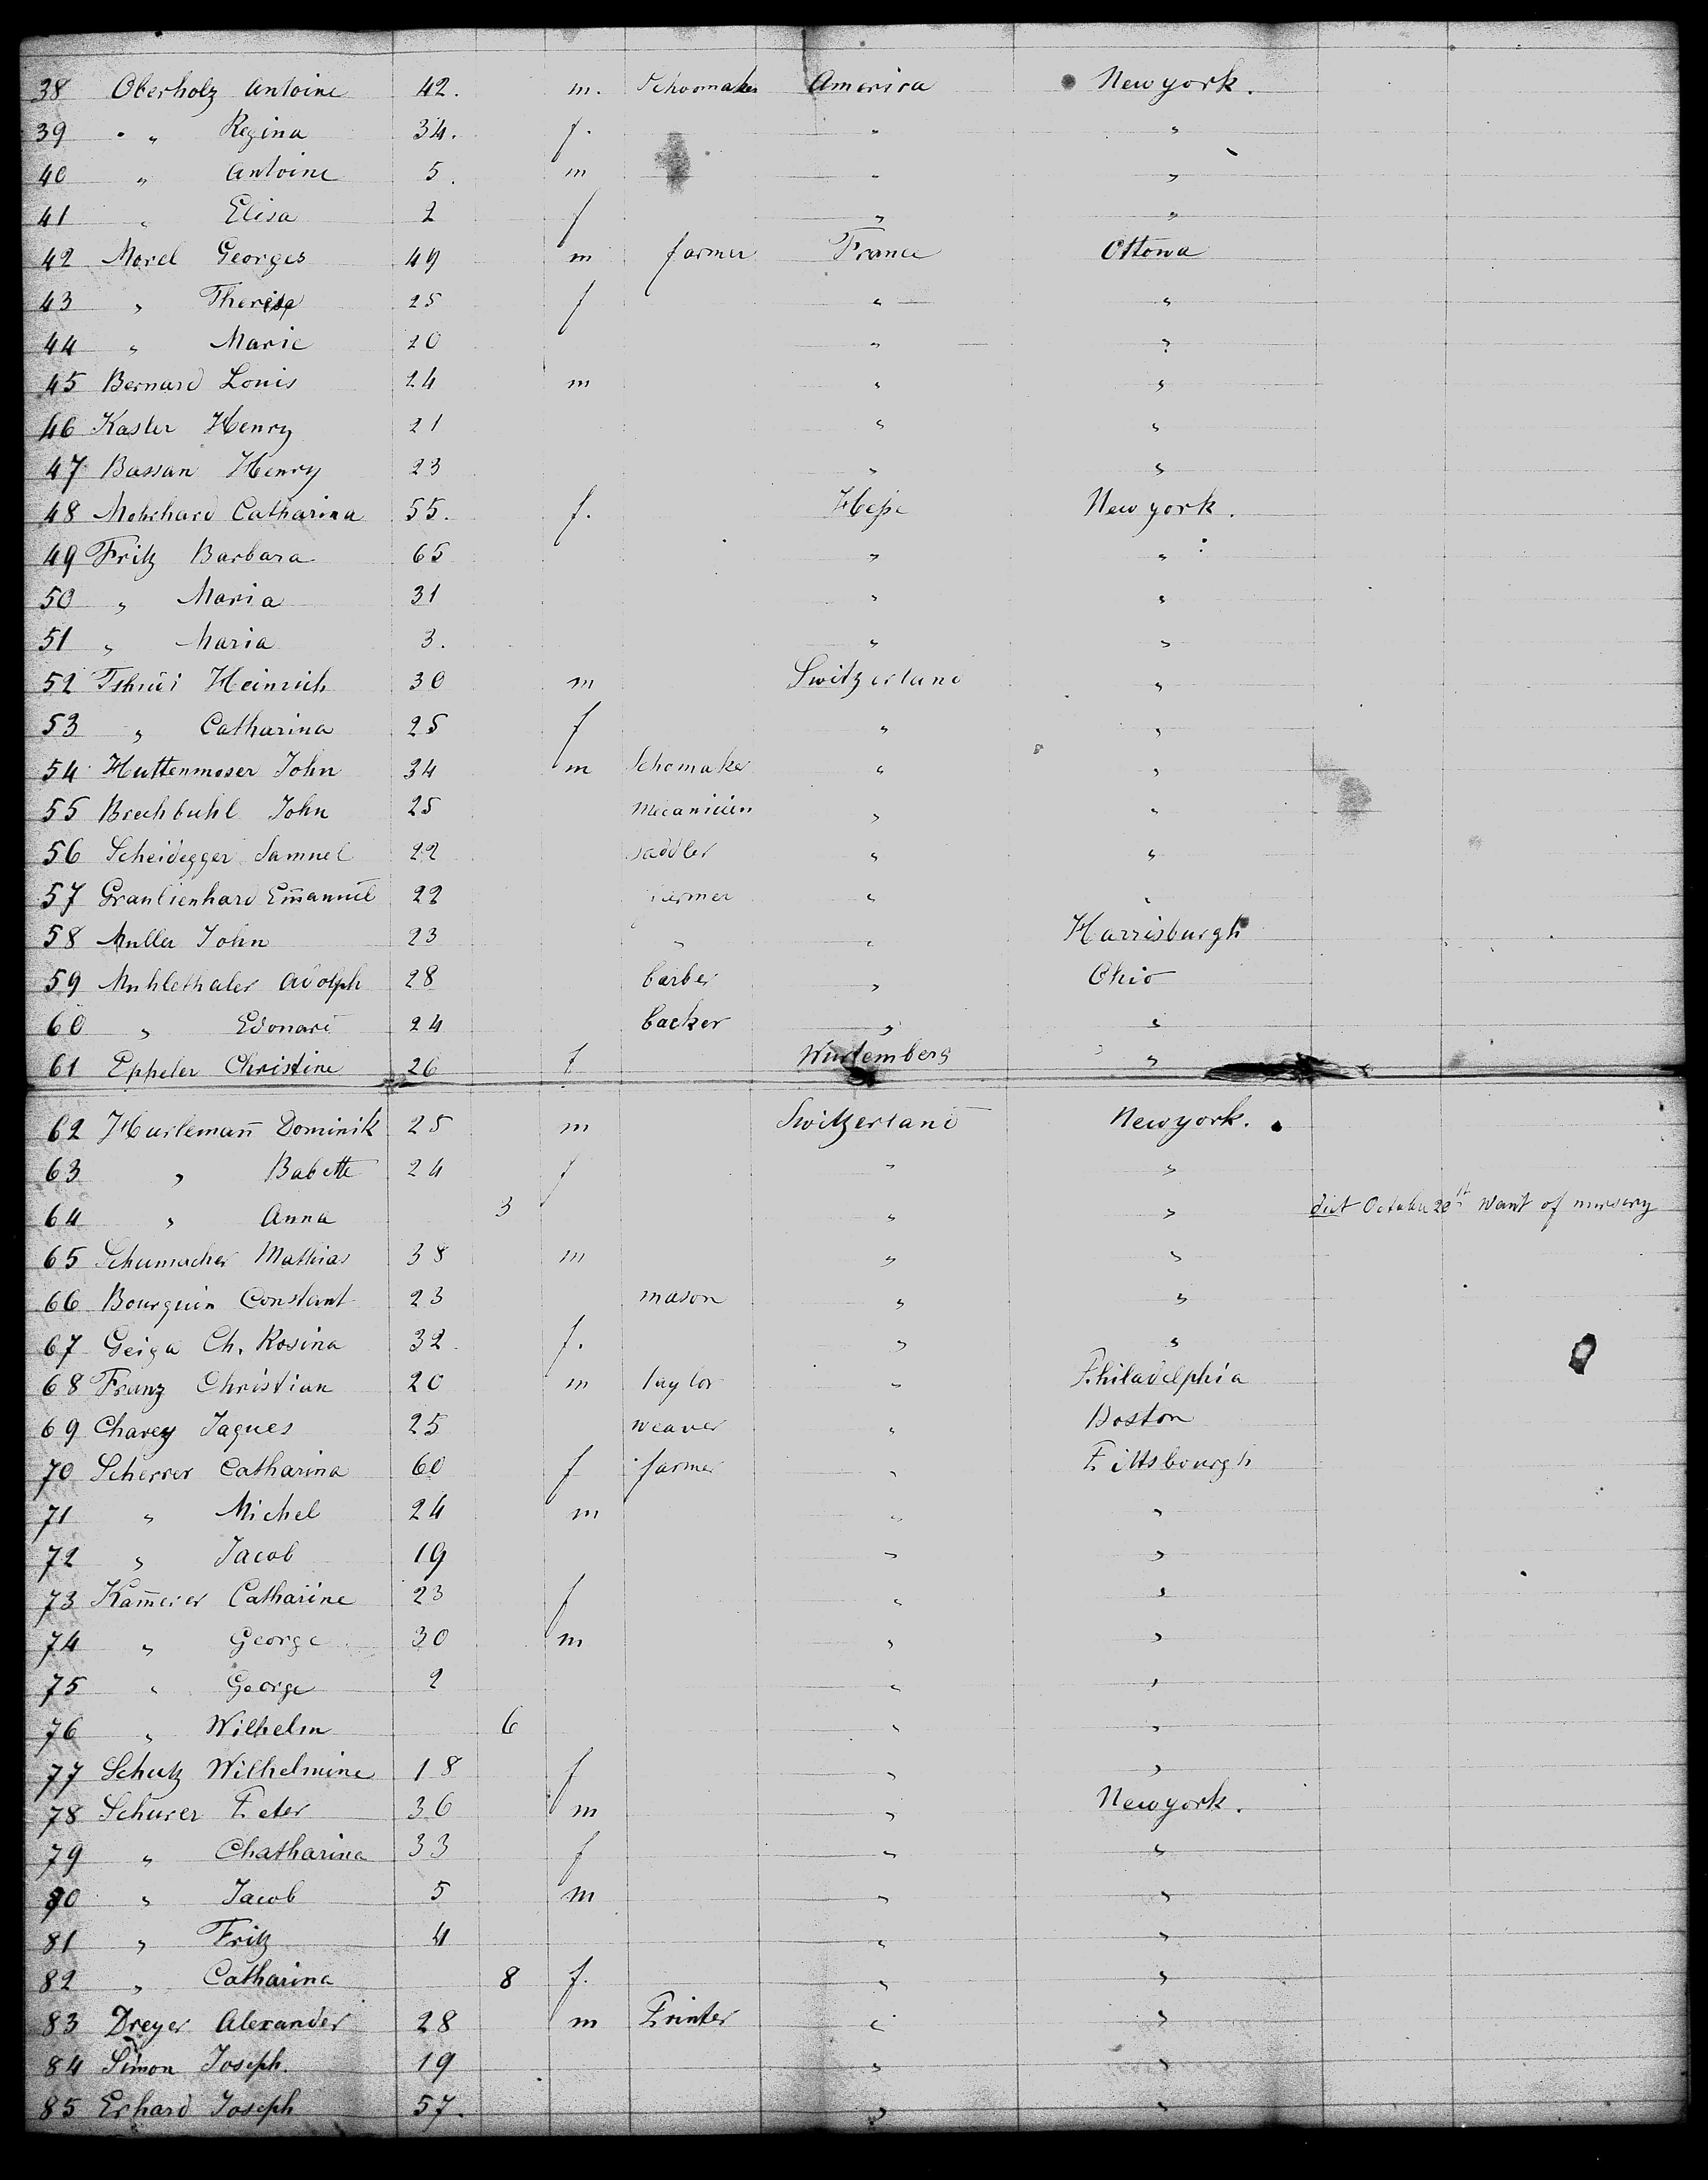 38 Oberholz Antoine 42. m. Schoomaker America New york.
39 " Regina 34. f. " "
40 " Antoine 5. m " "
41 " Elisa 2 f " "
42 Morel Georges 49 m farmer France Ottowa
43 " Therese 25 f " "
44 " Marie 20 " "
45 Bernard Louis 24 m " "
46 Kasler Henry 21 " "
47 Bassan Henry 23 " "
48 Mehrhard Catharina 55. f. Heße New york.
49 Fritz Barbara 65 " "
50 " Maria 31 " "
51 " Maria 3. " "
52 Heinrich 30 m Switzerland "
53 " Catharina 25 f " "
54 Huttenmoser John 34 m Schomaker " "
55 Brechbuhl John 25 Mecanicien " "
56 Scheidegger Samuel 22 saddler " "
57 Granlienhard Em̄anuel 22 farmer " "
58 Muller John 23 " " Harrisburgh
59 Muhlethaler Adolph 28 barber " Ohio
60 " Edouard 24 backer " "
61 Eppeler Christine 26 f Wurtemberg "
62 Hurleman̄ Dominik 25 m Switzerland New york.
63 " Babette 24 f " "
64 " Anna 3 " " October 20st Want of
65 Schumacher Mathias 38 m " "
66 Bourquin Constant 23 mason " "
67 Geiga Ch. Rosina 32. f. " "
68 Franz Christian 20 m taylor " Philadelphia
69 Charey Jaques 25 weaver " Boston
70 Scherrer Catharina 60 f farmer " Pittsbourgh
71 " Michel 24 m " "
72 " Jacob 19 " "
73 Kam̄erer Catharine 23 f " "
74 " George 30 m " "
75 " George 2 " "
76 " Wilhelm 6 " "
77 Schutz Wilhelmine 18 f " "
78 Schurer Peter 36 m " New york.
79 " Chatharina 33 f " "
80 " Jacob 5 m " "
81 " Fritz 4 " "
82 " Catharina 8 f. " "
83 Dreyer Alexander 28 m Printer " "
84 Simon Joseph. 19 " "
85 Erhard Joseph 57. " "